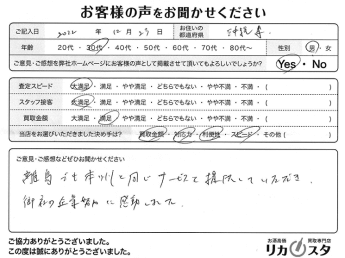 お客様の声をお聞かせください
ご記入日 2022 年 12 月 27 日 お住いの都道府県 沖縄県
年齢 20代・30代・40代・50代・60代・70代・80代〜 性別 男・女
ご意見・ご感想を弊社ホームページにお客様の声として掲載させて頂いてもよろしいでしょうか? Yes・No
査定スピード 大満足・満足・やや満足・どちらでもない・やや不満・不満・( )
スタッフ接客 大満足・満足・やや満足・どちらでもない・やや不満・不満・( )
買取金額 大満足・満足・やや満足・どちらでもない・やや不満・不満・( )
当店をお選びいただきました決め手は? 買取金額・対応力・利便性・スピード・その他( )
ご意見・ご感想などぜひお聞かせください
離島でも本州と同じサービスを提供していただき
御社の企業努力に感動しました。
ご協力ありがとうございました。
この度は誠にありがとうございました。
お酒高価格 買取専門店
リカスタ